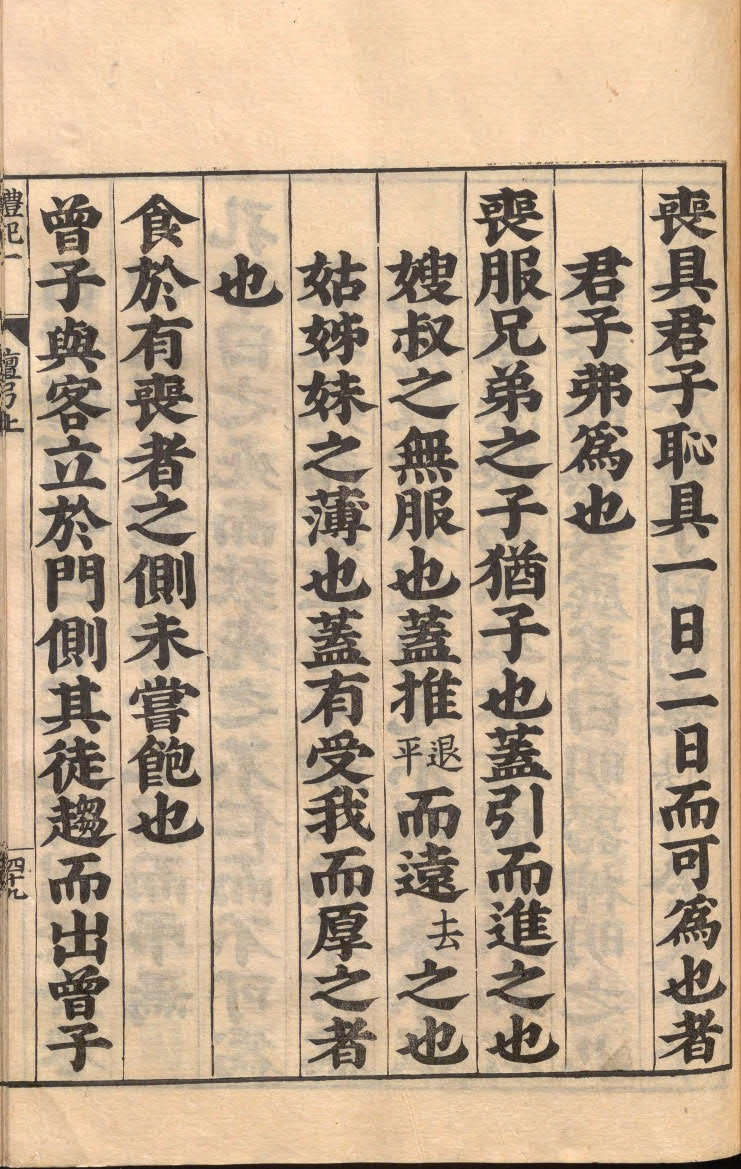 喪具君子恥具一日二日而可爲也者
君子弗爲也
喪服兄弟之子猶子也蓋引而進之也
嫂叔之無服也蓋推退平而遠去之也
姑姊妹之薄也蓋有受我而厚之者
也
食於有喪者之側未嘗飽也
曾子與客立於門側其徒趨而出曾子
禮記一 檀弓上 四十九